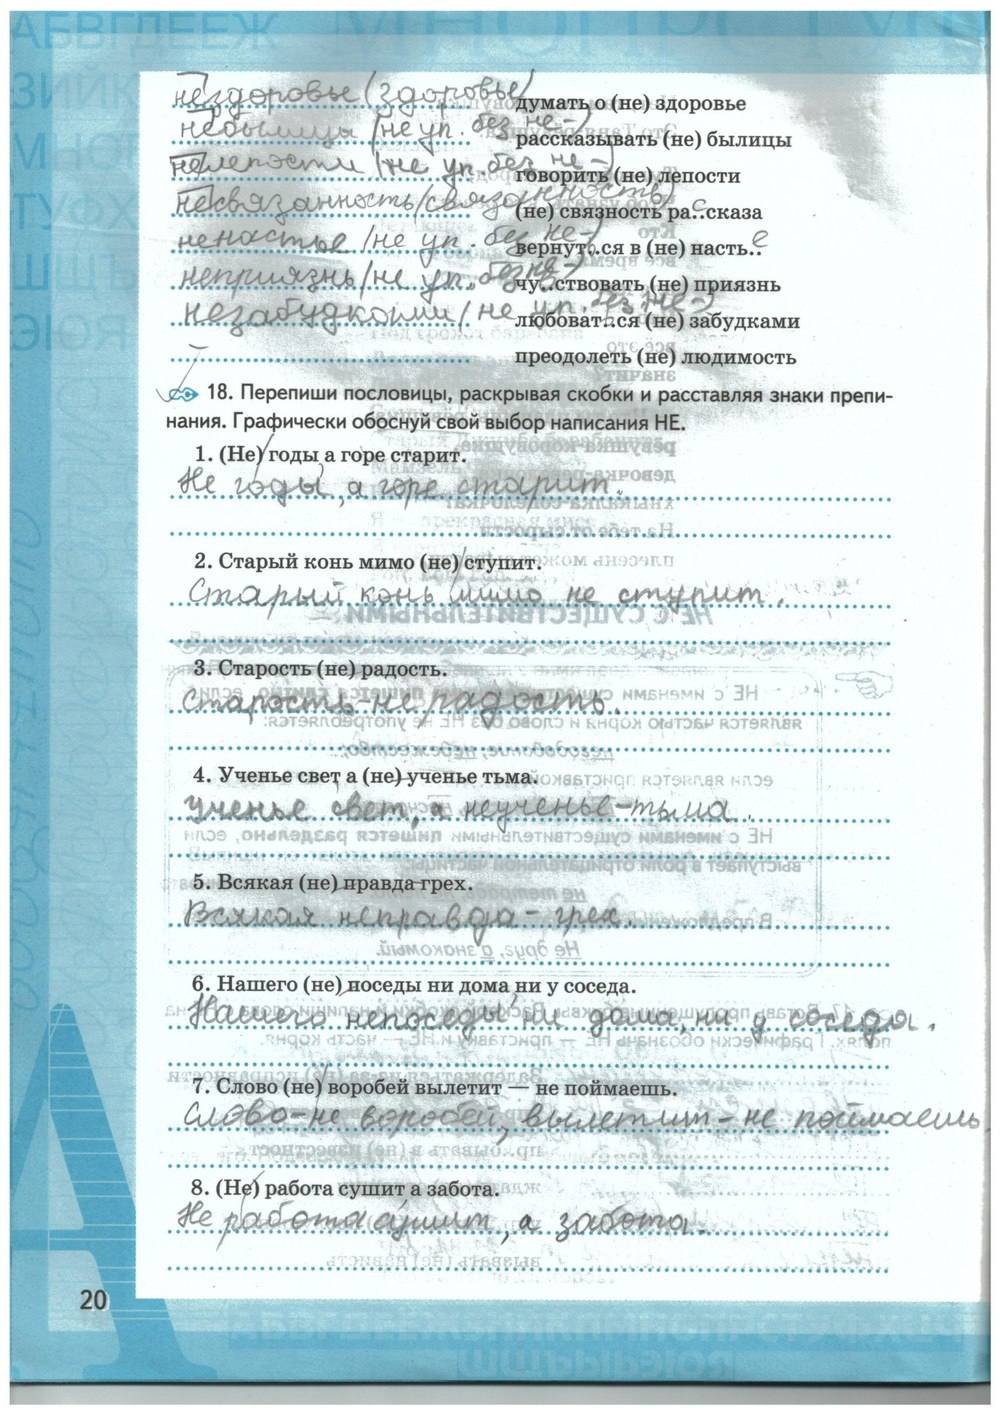 АБВГДЕЕЖ
ЗИЙК
МНОП
ТУФХ
ШЩ
ЭЮЯ
нездоровье (здоровье) думать о (не) здоровье
небылицы (не уп. без не-) рассказывать (не) былицы
нелепости (не уп. без не-) говорить (не) лепости
несвязанность (связанность) (не) связность ра..сказа с
ненастье (не уп. без не-) вернут..ся в (не) насть.. е
неприязнь (не уп. без не-) чу..ствовать (не) приязнь
незабудками (не уп. без не-) любоват..ся (не) забудками
преодолеть (не) людимость
18. Перепиши пословицы, раскрывая скобки и расставляя знаки препи-
нания. Графически обоснуй свой выбор написания НЕ.
1. (Не) годы а горе старит.
Не годы, а горе старит.
2. Старый конь мимо (не) ступит.
Старый конь мимо не ступит.
3. Старость (не) радость.
Старость-не радость.
4. Ученье свет а (не) ученье тьма.
Ученье свет, а неученье-тьма.
5. Всякая (не) правда грех.
Всякая неправда - грех.
6. Нашего (не) поседы ни дома ни у соседа.
Нашего непоседы ни дома, ни у соседа.
7. Слово (не) воробей вылетит — не поймаешь.
Слово-не воробей, вылетит - не поймаешь.
8. (Не) работа сушит а забота.
Не работа сушит, а забота.
20